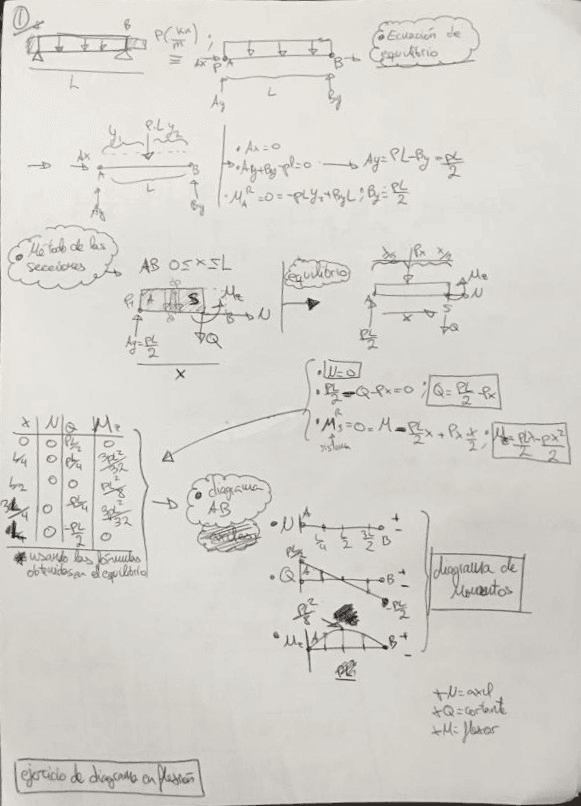 ①
B
P(kN/m) ;
≡
Ax P A B
L
L
Ay By
Ecuación de equilibrio
y₂ P.L y₂
Ax A B
L
Ay By
• Ax=0
• Ay+By-pl=0 → Ay=PL-By=PL/2
• M_A^R=0=-pLy₂+ByL ; By=PL/2
• Método de las secciones
AB 0≤x≤L
A S Mz
B N
Ay=PL/2 Q
x
equilibrio
Px x/2
Mz
A N
S
x Q
PL/2
• N=0
• PL/2-Q-Px=0 ; Q=PL/2-Px
• M_S^R=0=M-PL/2x+Px x/2 ; M=PLx/2-px²/2
sistema
x N Q Mz
0 0 PL/2 0
L/4 0 PL/4 3PL²/32
L/2 0 0 PL²/8
3L/4 0 -PL/4 3PL²/32
L 0 -PL/2 0
* usando las fórmulas
obtenidas en el equilibrio
• diagrama
AB
• N A + -
L/4 L/2 3L/2 B
PL/2
• Q A B + -
-PL/2
PL²/8
• Mz A B + -
diagrama de
Momentos
* N=axil
* Q=cortante
* M=flexor
ejercicio de diagrama en flexión